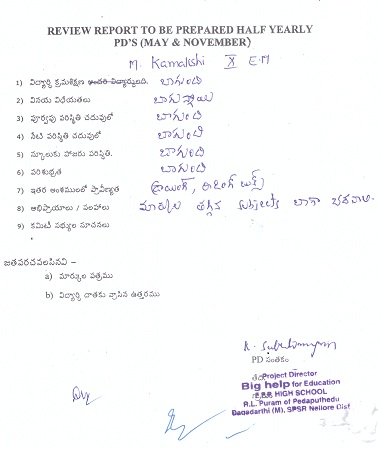 REVIEW REPORT TO BE PREPARED HALF YEARLY
PD'S (MAY & NOVEMBER)
M. Kamakshi X E.M
1) విద్యార్థి క్రమశిక్షణ బాగుంది
2) వినయ విధేయతలు
3) పూర్వపు పరిస్థితి చదువులో బాగుంది
4) నేటి పరిస్థితి చదువులో బాగుంది
5) స్కూలుకు హాజరు పరిస్థితి. బాగుంది
6) పరిశుభ్రత బాగుంది
7) ఇతర అంశములలో ప్రావీణ్యత
8) అభిప్రాయాలు / సలహాలు మార్కులు తగ్గిన బాగా చదవాలి
9) కమిటీ సభ్యుల సూచనలు
జతపరచవలసినవి –
a) మార్కుల పత్రము
b) విద్యార్థి దాతకు వ్రాసిన ఉత్తరము
PD సంతకం
Project Director
Big help for Education
HIGH SCHOOL
R.L. Puram of Pedaputhedu
Dagadarthi (M), SPSR Nellore Dist